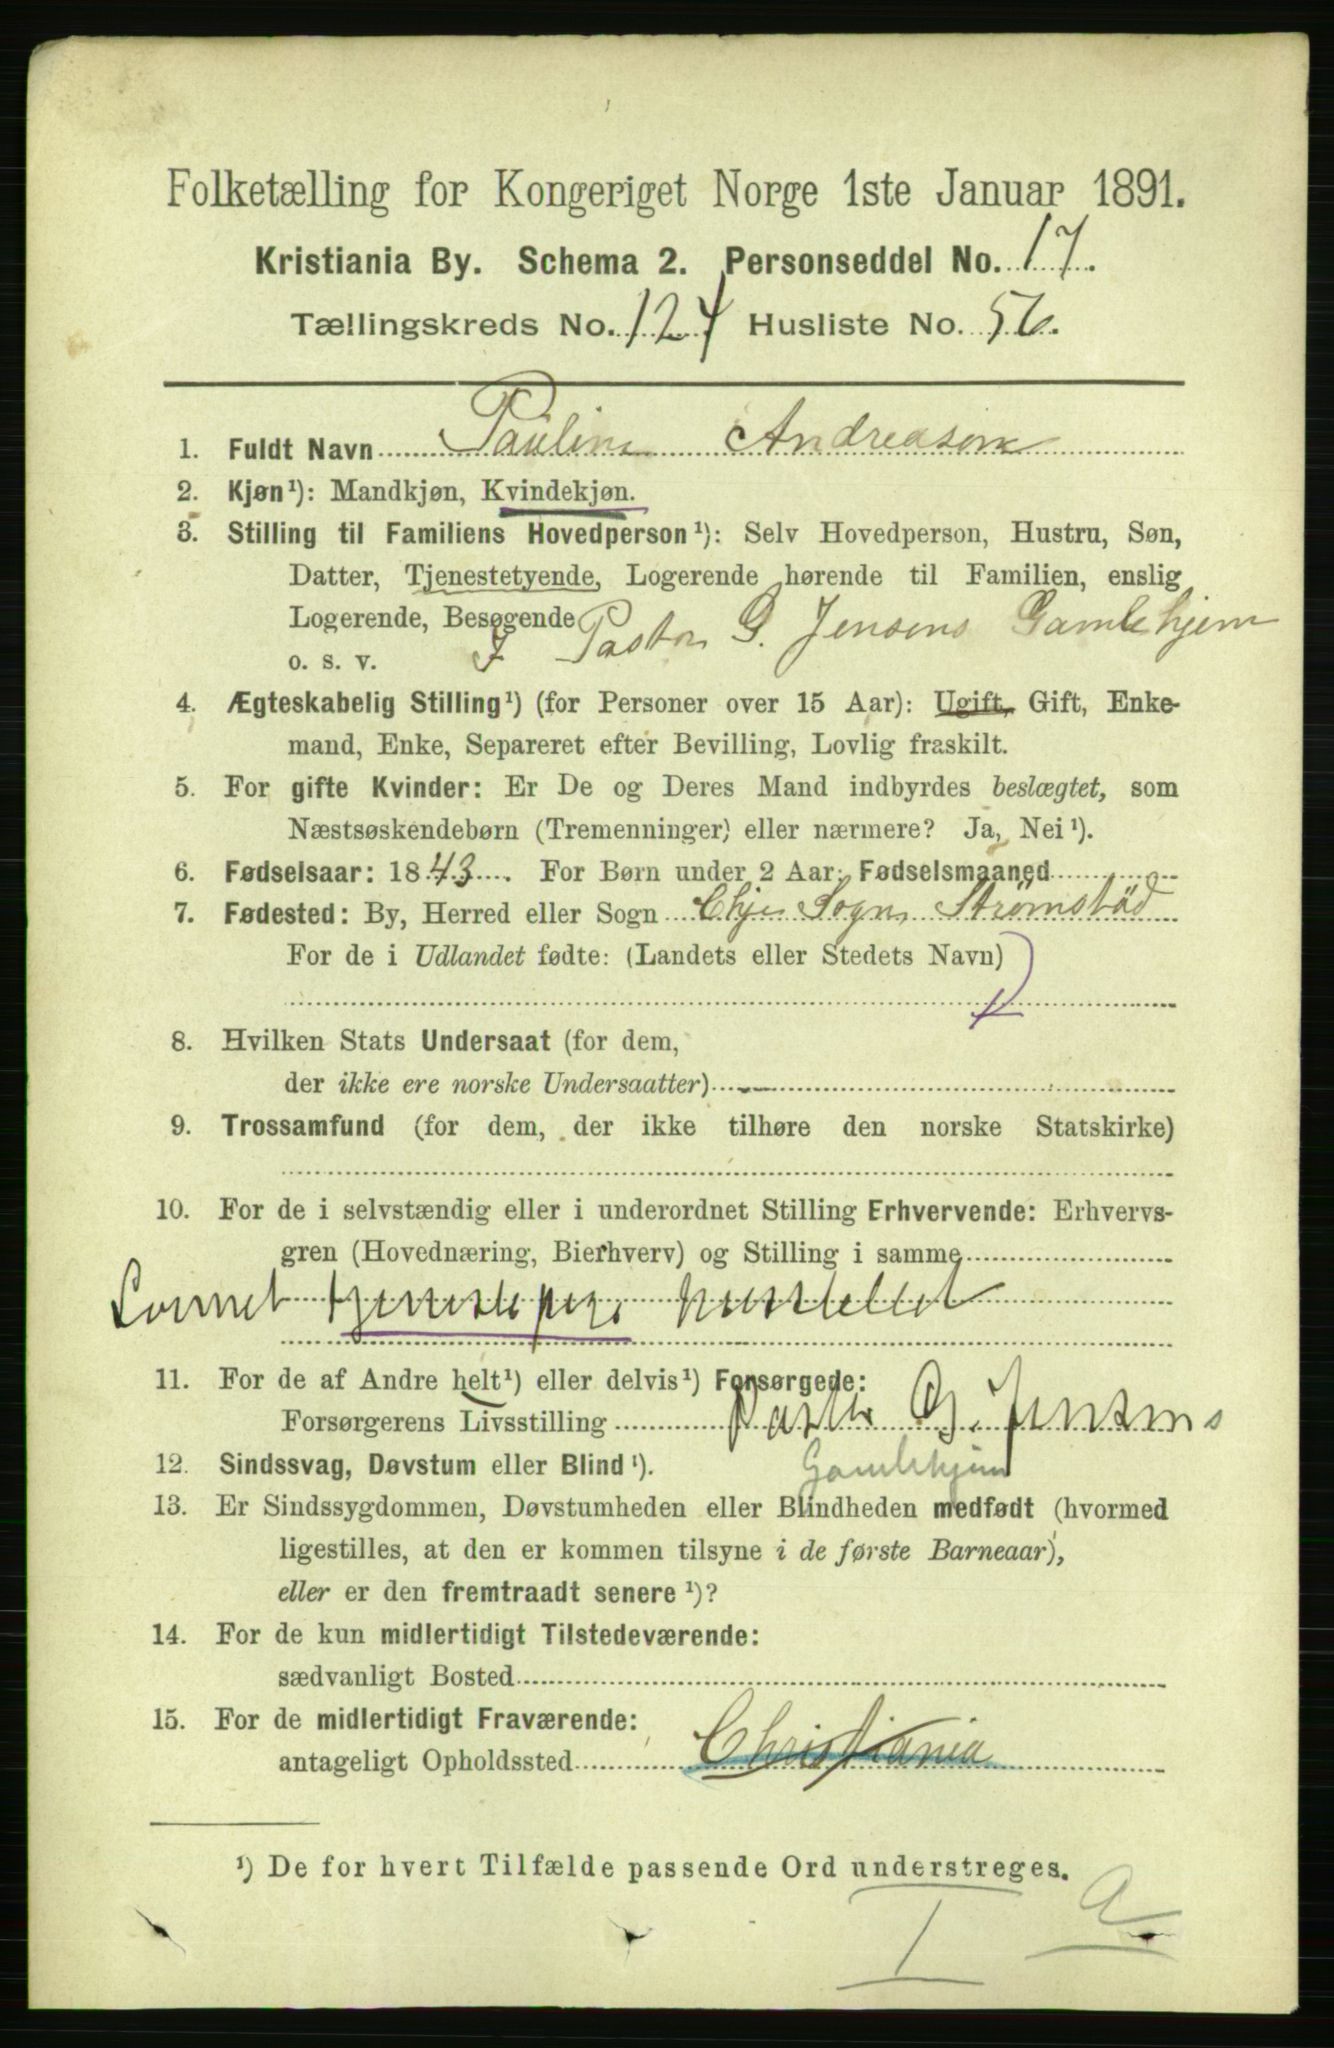 Folketælling for Kongeriget Norge 1ste Januar 1891.
Kristiania By. Schema 2. Personseddel No. 17.
Tællingskreds No. 124 Husliste No. 56.
1. Fuldt Navn Pauline Andreasen
2. Kjøn¹): Mandkjøn, Kvindekjøn.
3. Stilling til Familiens Hovedperson¹): Selv Hovedperson, Hustru, Søn,
Datter, Tjenestetyende, Logerende hørende til Familien, enslig
Logerende, Besøgende
o. s. v. I Pastor G. Jensens Gamlehjem
4. Ægteskabelig Stilling¹) (for Personer over 15 Aar): Ugift, Gift, Enke-
mand, Enke, Separeret efter Bevilling, Lovlig fraskilt.
5. For gifte Kvinder: Er De og Deres Mand indbyrdes beslægtet, som
Næstsøskendebørn (Tremenninger) eller nærmere? Ja, Nei¹).
6. Fødselsaar: 1843. For Børn under 2 Aar: Fødselsmaaned
7. Fødested: By, Herred eller Sogn Sogn Strømstöd
For de i Udlandet fødte: (Landets eller Stedets Navn)
8. Hvilken Stats Undersaat (for dem,
der ikke ere norske Undersaatter)
9. Trossamfund (for dem, der ikke tilhøre den norske Statskirke)
10. For de i selvstændig eller i underordnet Stilling Erhvervende: Erhvervs-
gren (Hovednæring, Bierhverv) og Stilling i samme
Lønnet tjenestepige
11. For de af Andre helt¹) eller delvis¹) Forsørgede:
Forsørgerens Livsstilling Pastor G. Jensens
12. Sindssvag, Døvstum eller Blind¹). Gamlehjem
13. Er Sindssygdommen, Døvstumheden eller Blindheden medfødt (hvormed
ligestilles, at den er kommen tilsyne i de første Barneaar),
eller er den fremtraadt senere¹)?
14. For de kun midlertidigt Tilstedeværende:
sædvanligt Bosted
15. For de midlertidigt Fraværende:
antageligt Opholdssted Christiania
¹) De for hvert Tilfælde passende Ord understreges.
I a